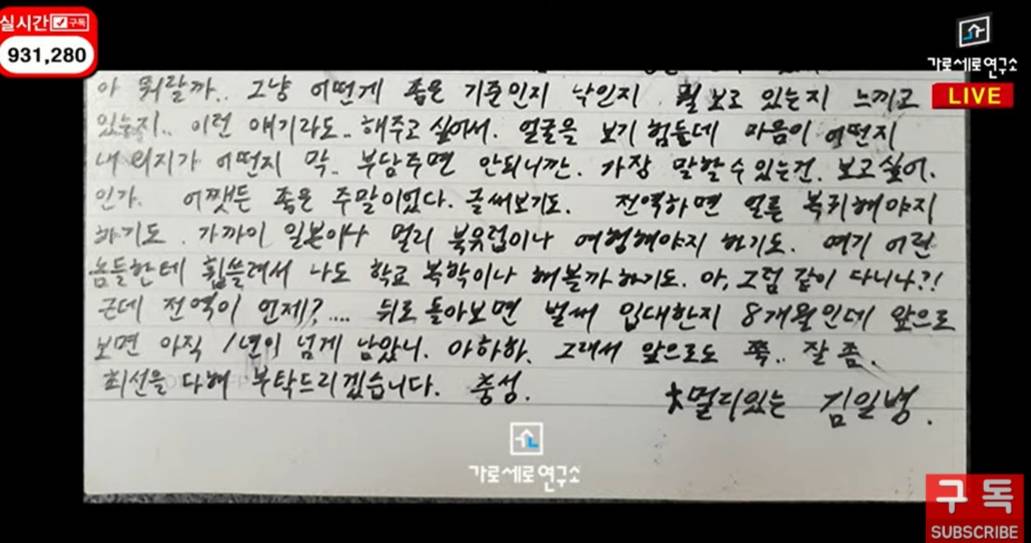 실시간 구독
931,280
가로세로연구소
LIVE
아 뭐랄까.. 그냥 어떤게 좋은 기준인지 낙인지 뭘 보고 있는지 느끼고
있는지.. 이런 얘기라도.. 해주고 싶어서. 얼굴을 보기 힘든데 마음이 어떤지
내 의지가 어떤지 막.. 부담주면 안되니깐. 가장 말할 수 있는건. 보고싶어.
인가. 어쨋든 좋은 주말이었다. 글써보기도. 전역하면 얼른 복귀해야지
하기도. 가까이 일본이나 멀리 북유럽이나 여행해야지 하기도. 여기 어린
놈들한테 휩쓸려서 나도 학교 복학이나 해볼까 하기도. 아, 그럼 같이 다니나?!
근데 전역이 언제?.... 뒤로 돌아보면 벌써 입대한지 8개월인데 앞으로
보면 아직 1년이 넘게 남았니. 아하하. 그래서 앞으로도 쭉.. 잘 좀.
최선을 다해 부탁드리겠습니다. 충성.
멀리있는 김일병.
가로세로연구소
구독
SUBSCRIBE